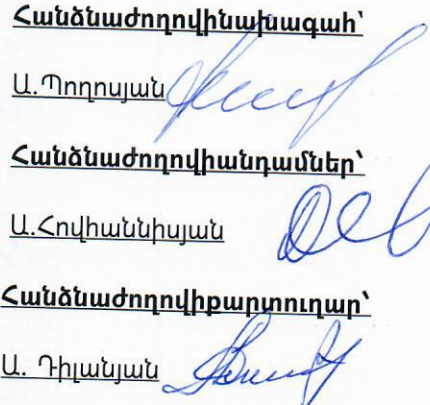 Հանձնաժողովինախագահ՝
Ա.Պողոսյան
Հանձնաժողովիանդամներ՝
Ա.Հովհաննիսյան
Հանձնաժողովիքարտուղար՝
Ա. Դիլանյան